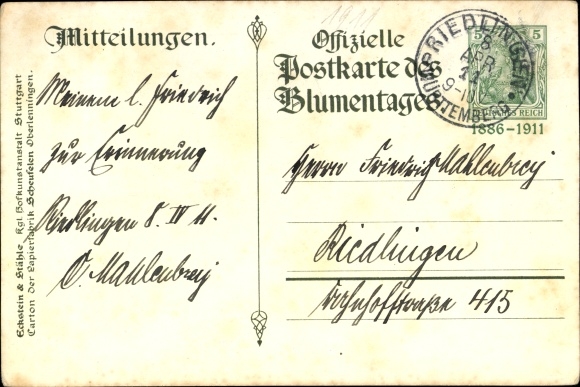 1911
Mitteilungen.
Meinem l. Friedrich
zur Erinnerung
Riedlingen 8. IV 11.
O. Mahlenbrey
Eckstein & Stähle, Kgl. Hofkunstanstalt Stuttgart
Carton der Papierfabrik Scheufelen Oberlenningen.
Offizielle
Postkarte des
Blumentages
RIEDLINGEN
8
APR
11
9-10
WÜRTTEMBERG
5 5
REICH
1886-1911
Herrn Friedrich Mahlenbrey
Riedlingen
Bahnhofstraße 415